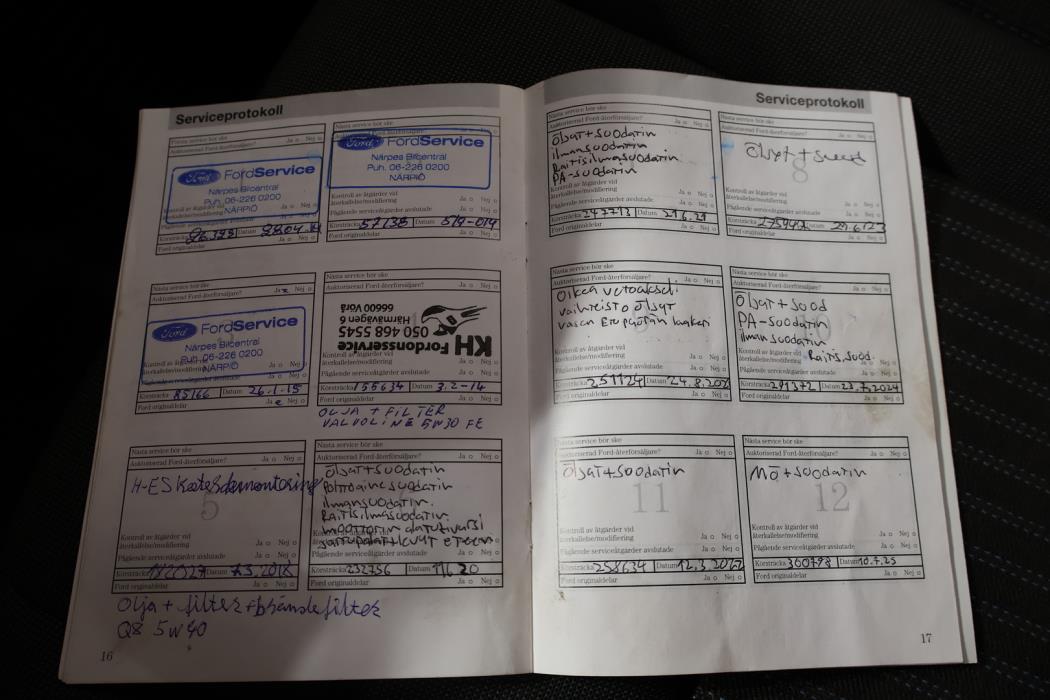 Serviceprotokoll
Första service bör ske
Auktoriserad Ford-återförsäljare? Ja o Nej o
Ford FordService
Närpes Bilcentral
Puh. 06-226 0200
NÄRPIÖ
återkallelse/modifiering
Körsträcka Datum
Ford originaldelar Ja o Nej o
Nästa service bör ske
Ford FordService
Närpes Bilcentral
Puh. 06-226 0200
NÄRPIÖ
Kontroll av åtgärder vid
återkallelse/modifiering Ja o Nej o
Pågående serviceåtgärder avslutade Ja o Nej o
Körsträcka 57138 Datum
Ford originaldelar Ja o Nej o
Nästa service bör ske
Auktoriserad Ford-återförsäljare? Nej o
Ford FordService
Närpes Bilcentral
Puh. 06-226 0200
NÄRPIÖ
Körsträcka 85166 Datum 26.1-15
Ford originaldelar Nej o
Nästa service bör ske
Auktoriserad Ford-återförsäljare? Ja o Nej o
KH Fordonsservice
050 468 5545
Härmävägen 6
66600 Vörå
Kontroll av åtgärder vid
återkallelse/modifiering Ja o Nej o
Pågående serviceåtgärder avslutade Ja o Nej o
Körsträcka 155634 Datum 3.2-14
Ford originaldelar Ja o Nej o
OLJA + FILTER
VALVOLINE 5W30 FE
Nästa service bör ske
Auktoriserad Ford-återförsäljare? Ja o Nej o
5
Kontroll av åtgärder vid
återkallelse/modifiering Ja o Nej o
Pågående serviceåtgärder avslutade Ja o Nej o
Körsträcka Datum
Ford originaldelar Ja o Nej o
Olja + filter + bränslefilter
Q8 5W40
Nästa service bör ske
Auktoriserad Ford-återförsäljare? Ja o Nej o
Öljyt+suodatin
Polttoaine suodatin
ilmansuodatin
Raitisilmasuodatin
Pågående serviceåtgärder avslutade Ja o Nej o
Körsträcka 232756 Datum
Ford originaldelar Ja o Nej o
16
Serviceprotokoll
Nästa service bör ske
Auktoriserad Ford-återförsäljare? Ja o Nej o
Öljyt+suodatin
ilmansuodatin
Raitisilmasuodatin
PA-suodatin
Kontroll av åtgärder vid
återkallelse/modifiering Ja o Nej o
Pågående serviceåtgärder avslutade Ja o Nej o
Körsträcka 243713 Datum 21.6.21
Ford originaldelar Ja o Nej o
Nästa service bör ske
Auktoriserad Ford-återförsäljare? Ja o Nej o
Öljyt + suod
8
Kontroll av åtgärder vid
återkallelse/modifiering Ja o Nej o
Pågående serviceåtgärder avslutade Ja o Nej o
Körsträcka Datum
Ford originaldelar Ja o Nej o
Nästa service bör ske
Auktoriserad Ford-återförsäljare? Ja o Nej o
Oikea vetoakseli
vaihteisto öljyt
vasen etupyörän laakeri
Kontroll av åtgärder vid
återkallelse/modifiering Ja o Nej o
Pågående serviceåtgärder avslutade Ja o Nej o
Körsträcka 251124 Datum
Ford originaldelar Ja o Nej o
Nästa service bör ske
Auktoriserad Ford-återförsäljare? Ja o Nej o
Öljyt + suod
PA-suodatin
ilman suodatin
Raitis.suod.
Kontroll av åtgärder vid
återkallelse/modifiering Ja o Nej o
Pågående serviceåtgärder avslutade Ja o Nej o
Körsträcka 291372 Datum 23.7.2024
Ford originaldelar Ja o Nej o
Nästa service bör ske
Auktoriserad Ford-återförsäljare? Ja o Nej o
Öljyt+suodatin
11
Kontroll av åtgärder vid
återkallelse/modifiering Ja o Nej o
Pågående serviceåtgärder avslutade Ja o Nej o
Körsträcka 258634 Datum
Ford originaldelar Ja o Nej o
Nästa service bör ske
Auktoriserad Ford-återförsäljare? Ja o Nej o
MÖ+suodatin
12
Kontroll av åtgärder vid
återkallelse/modifiering Ja o Nej o
Pågående serviceåtgärder avslutade Ja o Nej o
Körsträcka 300798 Datum 10.7.25
Ford originaldelar Ja o Nej o
17